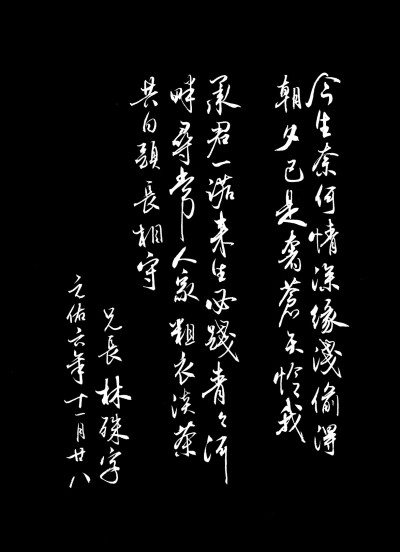 今生奈何情深缘浅偷得
朝夕已是奢苍天怜我
承君一诺来生必践青々河
畔寻常人家粗衣淡茶
共白头长相守
兄长林殊字
元佑六年十一月廿八